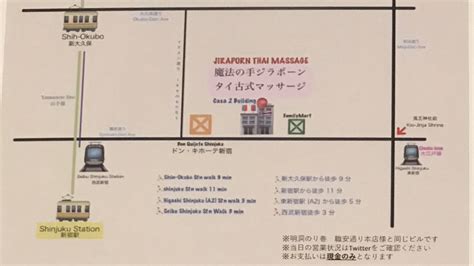 Shih-Okubo
新大久保
JIKAPORN THAI MASSAGE
魔法の手ジラポーン
タイ古式マッサージ
Casa Z Building
FamilyMart
山手線
Don Quijote Shinjuku
ドン・キホーテ新宿
Seibu Shinjuku Station
西武新宿
Shinjuku Station
新宿駅
Higashi Shinjuku
大江戸線
Shin-Okubo Stn walk 9 min
shinjuku Stn walk 11 min
Higashi Shinjuku (A2) Stn walk 3 min
Seibu Shinjuku Stn walk 8 min
新大久保駅から徒歩 9 分
新宿駅から徒歩 11 分
東新宿駅 (A2) から徒歩 3 分
西武新宿駅から徒歩 8 分
※明洞のり巻 職安通り本店様と同じビルです
※当日の営業状況はTwitterをご確認ください
※お支払いは現金のみとなります